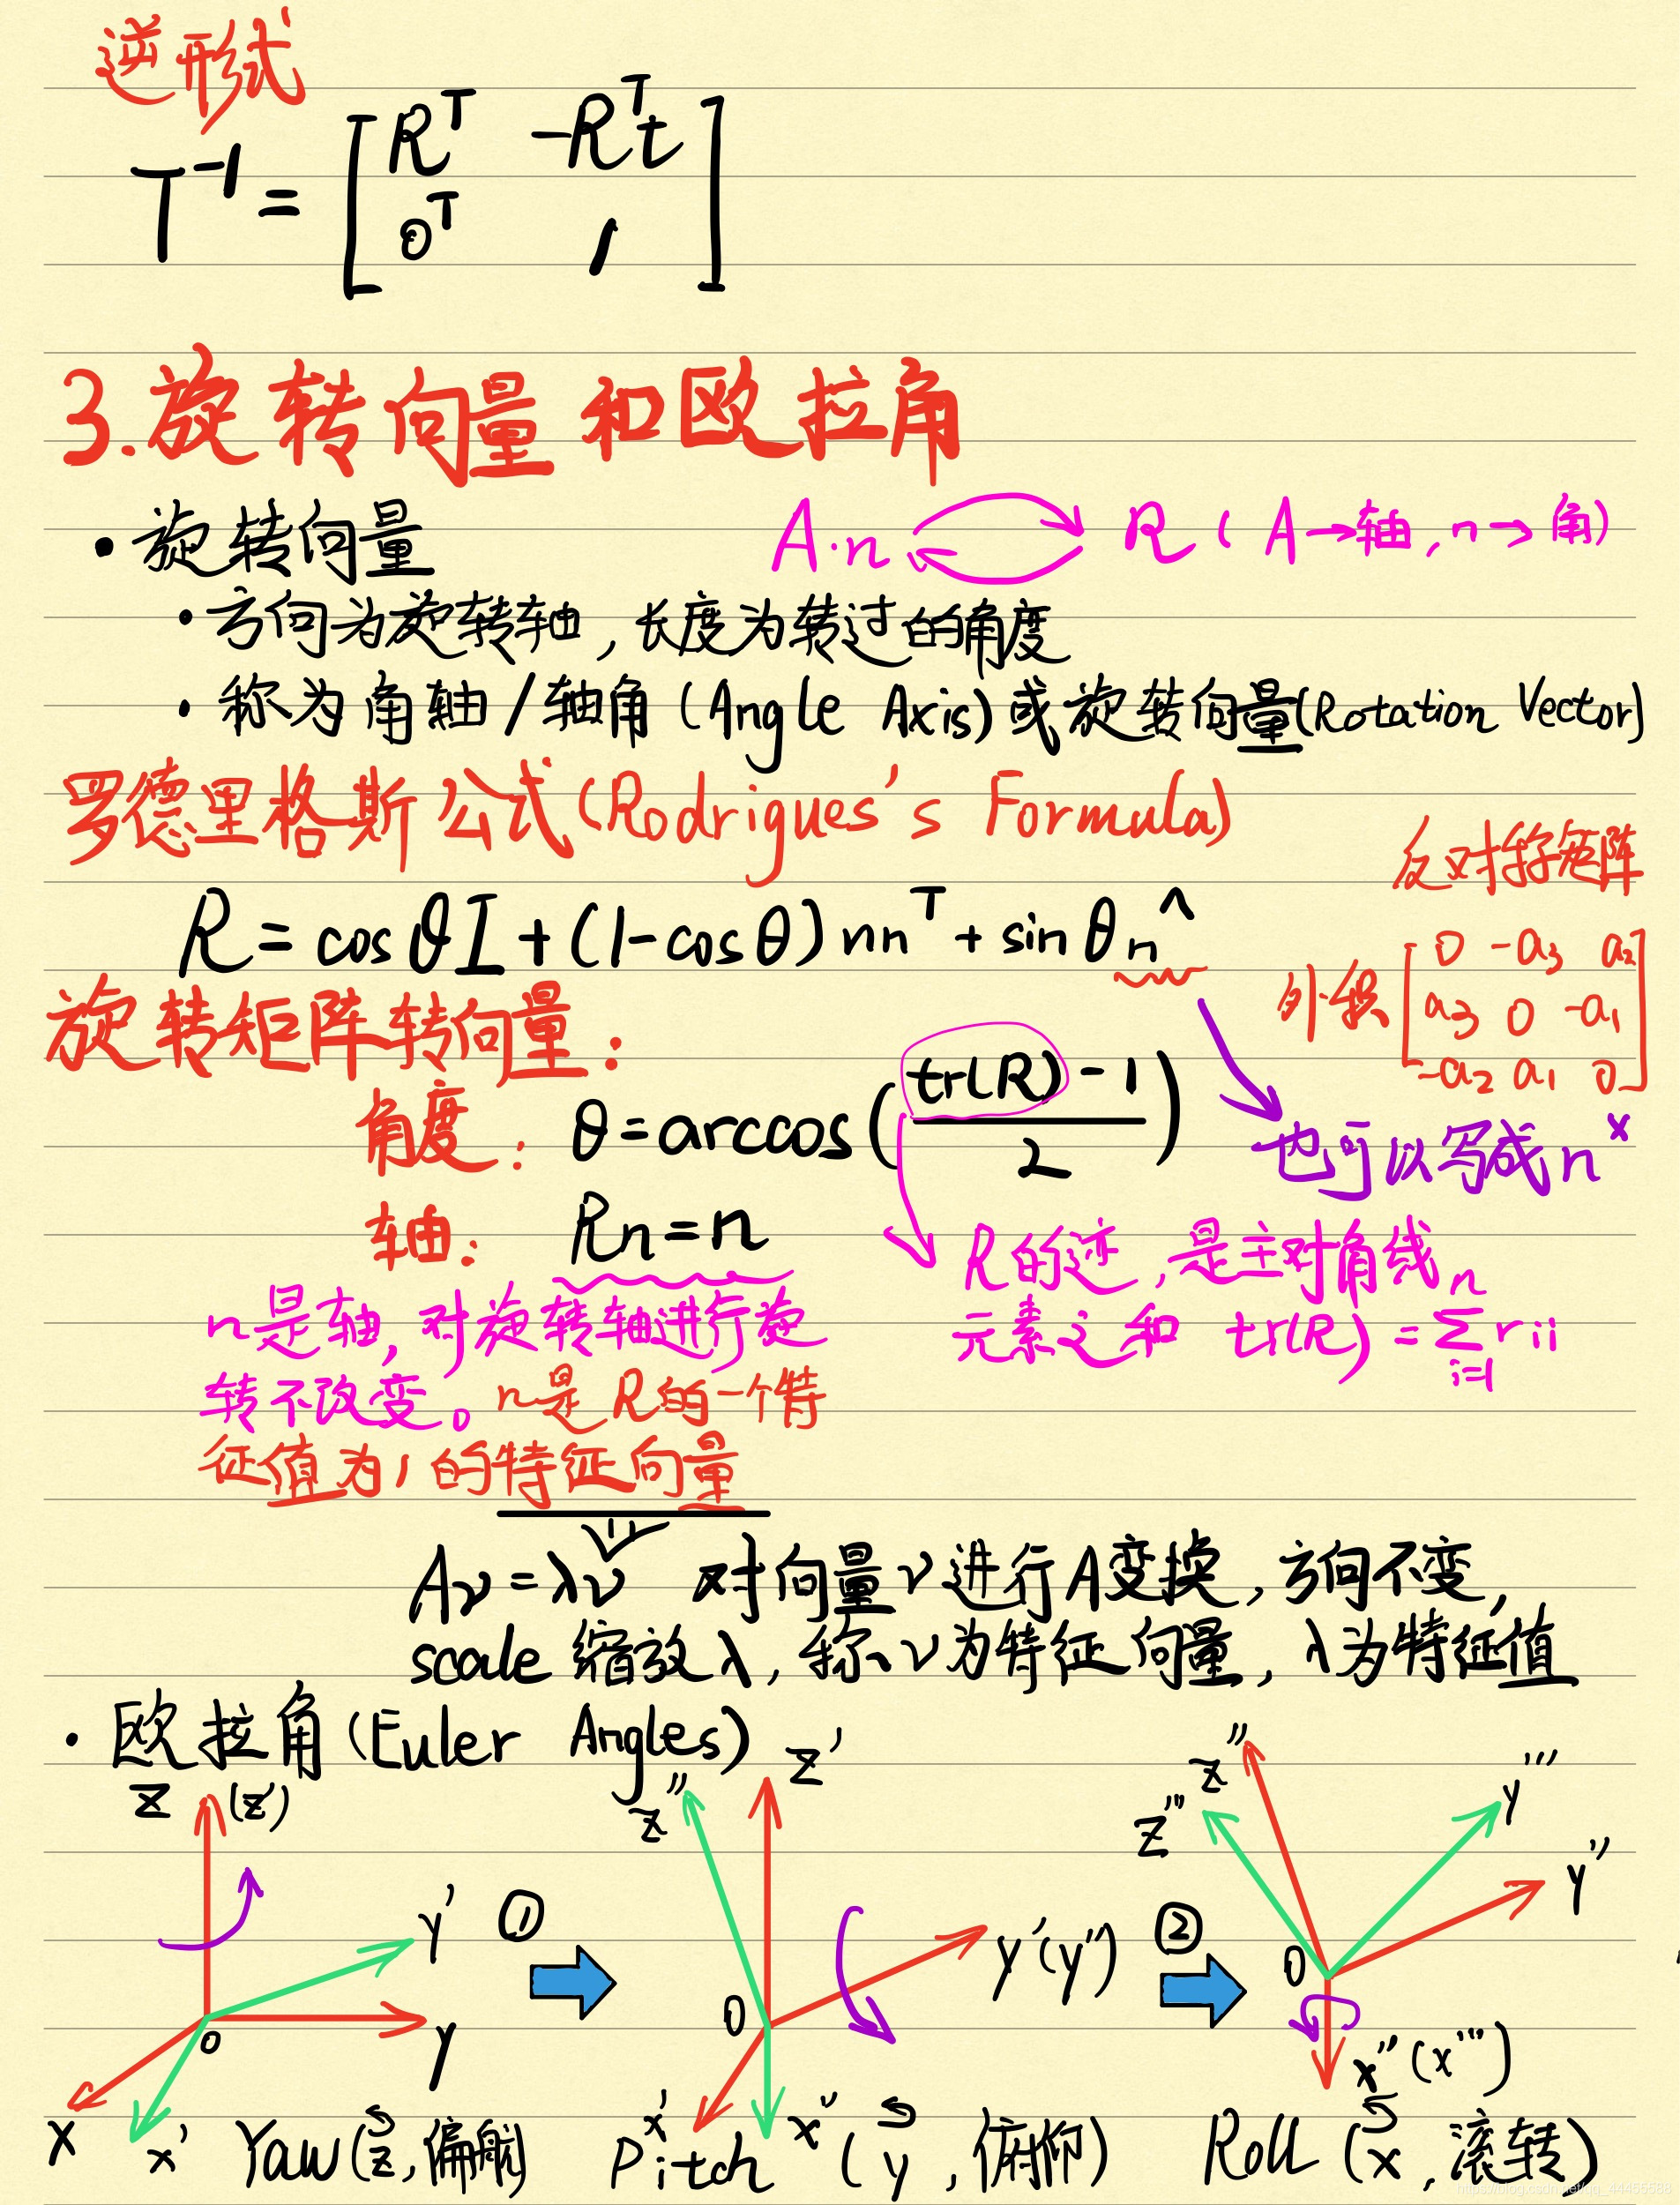 逆形式
T⁻¹ = [ Rᵀ -Rᵀt
0ᵀ 1 ]
3.旋转向量和欧拉角
• 旋转向量
A·n ⇄ R ( A→轴, n→角)
• 方向为旋转轴, 长度为转过的角度
• 称为角轴/轴角(Angle Axis)或旋转向量(Rotation Vector)
罗德里格斯公式(Rodrigues's Formula)
R = cosθI + (1-cosθ)nnᵀ + sinθn^
反对称矩阵
外积 [ 0 -a₃ a₂
a₃ 0 -a₁
-a₂ a₁ 0 ]
也可以写成n^x
旋转矩阵转向量:
角度: θ = arccos( (tr(R) - 1) / 2 )
轴: Rn = n
R的迹, 是主对角线
元素之和 tr(R) = Σ_{i=1}^{n} rii
n是轴, 对旋转轴进行旋
转不改变。n是R的一个特
征值为1的特征向量
Aν = λν 对向量ν进行A变换, 方向不变,
scale 缩放λ, 称ν为特征向量, λ为特征值
• 欧拉角(Euler Angles)
z (z') y' y o x x'
①
z'' z' y'(y'') O x' x''
②
z'' z''' y''' y'' O x''(x''')
Yaw(z, 偏航)
Pitch (y, 俯仰)
Roll (x, 滚转)